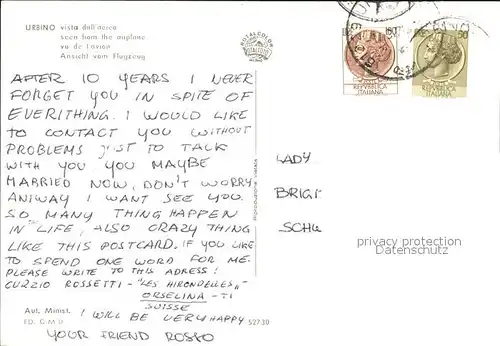 URBINO vista dall'aereo
seen from the airplane
vu de l'avion
Ansicht vom Flugzeug
AFTER 10 YEARS I NEVER
FORGET YOU IN SPITE OF
EVERITHING. I WOULD LIKE
TO CONTACT YOU WITHOUT
PROBLEMS JUST TO TALK
WITH YOU YOU MAYBE
MARRIED NOW, DON'T WORRY
ANIWAY I WANT SEE YOU.
SO, MANY THING HAPPEN
IN THE LIFE, ALSO CRAZY THING
LIKE THIS POSTCARD. IF YOU LIKE
TO SPEND ONE WORD FOR ME.
PLEASE WRITE TO THIS ADRESS:
CURZIO ROSSETTI - "LES HIRONDELLES"
ORSELINA - TI
SUISSE
I WILL BE VERY HAPPY
YOUR FRIEND ROSSO
Aut. Minist.
ED. G.M.U
52730
Riproduzione vietata
LADY
BRIGI
SCHU
privacy protection
Datenschutz
REPVBBLICA
ITALIANA
50
REPVBBLICA
ITALIANA